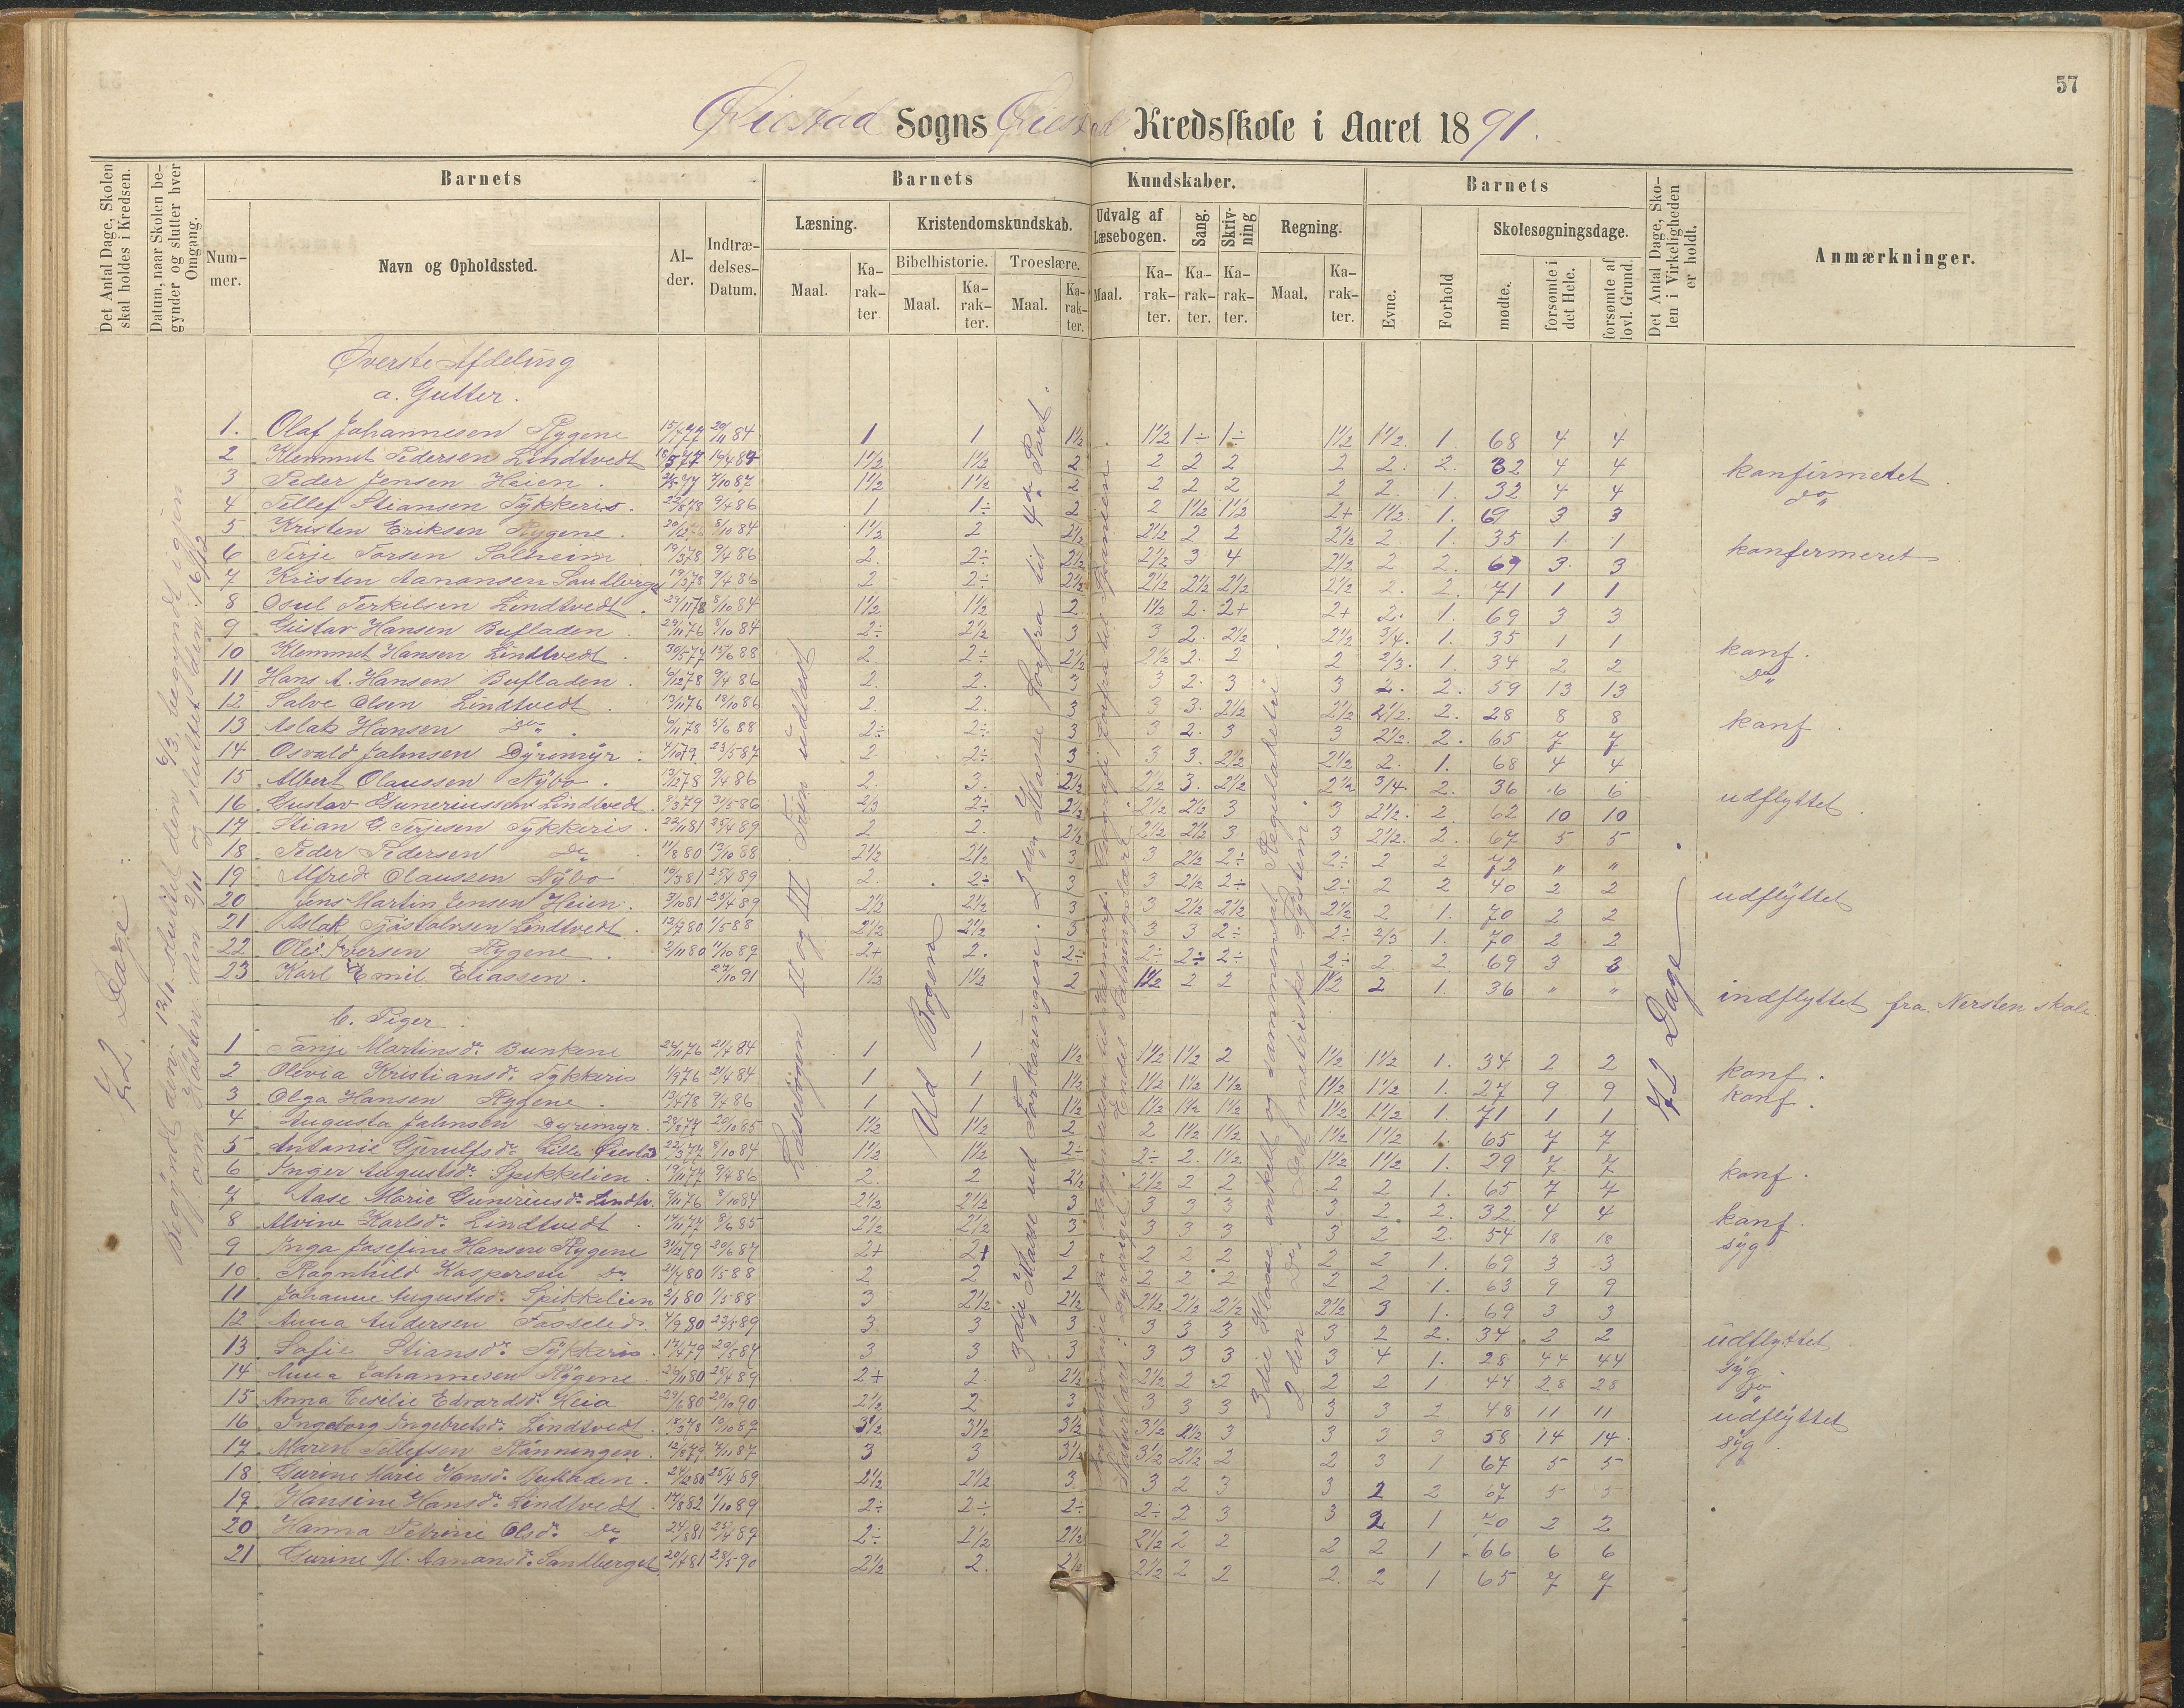 57
Øiestad Sogns Øiestad Kredsskole i Aaret 1891.
Det Antal Dage, Skolen skal holdes i Kredsen.
Datum, naar Skolen begynder og slutter hver Omgang.
Barnets
Nummer.
Navn og Opholdssted.
Alder.
Indtrædelses-Datum.
Barnets Kundskaber.
Læsning.
Maal.
Karakter
Kristendomskundskab.
Bibelhistorie.
Maal.
Karakter.
Troeslære.
Maal.
Karakter.
Udvalg af Læsebogen.
Maal.
Karakter.
Sang.
Karakter.
Skrivning
Karakter.
Regning.
Maal.
Karakter.
Barnets
Evne.
Forhold
Skolesøgningsdage.
mødte.
forsømte i det Hele.
forsømte af lovl. Grund.
Det Antal Dage, Skolen i Virkeligheden er holdt.
Anmærkninger.
72 Dage.
Begyndt den 12/1 sluttet den 6/3, begyndt igjen
om Høsten den 2/11 og sluttet den 16/12
Læsebogen II og III Trin udlæst
Ud Bogen
3die Klasse ud Forklaringen. 2den Klasse forfra til 4de Part.
3die Klasse enkelt og sammensat Reguladetri.
2den Do Det metriske System.
72 Dage
Øverste Afdeling
a. Gutter.
1. Olaf Johannesen Rygene 20/11 84 1 1 1½ 1½ 1÷ 1÷ 1½ 1½. 1. 68 4 4
2 Klemmet Pedersen Lindtvedt 18/5 77 1½ 1½ 2 2 2 2 2 2. 2. 32 4 4 konfirmeret
3 Peder Jensen Heien. 7/10 87 1½ 1½ 2 2 2 2 2 2. 1. 32 4 4 do
4 Tellef Stiansen Tykkeris. 22/8 78 9/4 86 1 1÷ 2 2 1½ 1½ 2+ 1½. 1. 69 3 3
5 Kristen Eriksen Rygene. 8/10 84 1½ 2 2½ 2½ 2 2 2½ 2 1. 35 1 1 konfermeret
6 Terje Torsen Solheim 19/3 78 9/4 86 2. 2÷ 2½ 2½ 3 4 2½ 2 2. 69 3. 3
7 Kristen Aanonsen Sandberget 19/3 78 9/4 86 2 2÷ 2½ 2½ 2½ 2½ 2½ 2. 2. 71 1 1
8 Osul Terkilsen Lindtvedt. 8/10 84 1½ 1½ 2 1½ 2. 2+ 2+ 2. 1. 69 3 3
9 Gustav Hansen Bufladen. 29/11 76 8/10 84 2÷ 2½ 3 3 2. 2½ 2½ 3/4. 1. 35 1 1 konf.
10 Klemmet Hansen Lindtvedt. 30/5 77 15/6 88 2 2÷ 2½ 2½ 2. 2 2 2/3. 1. 34 2 2 Do
11 Hans A. Hansen Bufladen. 6/12 78 9/4 86 2. 2. 3 3 2. 3 3 2. 2. 59 13 13
12 Salve Olsen Lindtvedt. 13/11 76 18/10 86 2. 2. 3 3 3. 2½ 2½ 2½. 2. 28 8 8 konf.
13 Aslak Hansen Do. 6/11 78 5/6 88 2÷ 2÷ 3 3 2. 3 3 2½. 2. 65 7 7
14 Osvald Jahnsen Dyremyr. 4/10 79. 23/5 87 2. 2÷ 3 3 3. 2½ 2½ 2. 1. 68 4 4
15 Albert Olaussen Nybo. 13/12 78 9/4 86 2. 3. 2½ 2½ 3. 2½ 2½ 3/4. 2. 36 6 6 udflyttet.
16 Gustav Guneriussen Lindtvedt 8/3 79 31/5 86 2/3 2÷ 2½ 2½ 2½ 3 3 2½. 2. 62 10 10
17 Stian G. Terjesen Tykkeris. 22/11 81 25/4 89 2 2. 2½ 2½ 2½ 3 3 2½. 2. 67 5 5
18 Peder Pedersen Do 11/8 80 13/10 88 2½ 2½ 3 3 2½ 2÷ 2÷ 2 2 72 " "
19 Alfred Olaussen Nybo 10/3 81 25/4 89 2. 2÷ 3 3 2½ 2÷ 2÷ 2 2 40 2 2 udflyttet
20 Jens Martin Jensen Heien. 3/10 81 25/4 89 2½ 2½ 3 3 2½ 2½ 2½ 2 1. 70 2 2
21 Aslak Tjøstolvsen Lindtvedt. 13/7 80 1/5 88 2½ 2½ 3 3 3 2÷ 2÷ 2/3 1. 70 2 2
22 Ole Iversen Rygene. 2/11 80 11/10 87 2+ 2. 2÷ 2÷ 2÷ 2÷ 2÷ 2 2 69 3 3
23 Karl Emil Eliassen. 27/10 91 1½ 1½ 2 1½ 2 2 1½ 2 1. 36 " " indflyttet fra Nersten skole
b. Piger.
1 Tonje Martinsdr. Bunkene 24/11 76 21/4 84 1 1 1½ 1½ 1½ 2 1½ 1½ 1. 34 2 2 konf.
2 Olevia Kristiansdr. Tykkeris 21/4 84 1 1 1½ 1½ 1½ 1½ 1½ 1½ 1. 27 9 9 konf.
3 Olga Hansen Rygene. 9/4 86 1 1 1½ 1½ 1½ 1½ 1½ 1½ 1. 71 1 1
4 Augusta Jahnsen Dyremyr. 20/10 85 1½ 1½ 2 2 1½ 1½ 1½ 1½ 1. 65 7 7
5 Antonie Gjerulfsdr. Lille Øiestad 22/3 77 8/10 84 1½ 1½ 2÷ 2÷ 2. 1½ 1½ 1½ 1. 29 7 7 konf.
6 Inger Augustsdr. Spikkelien. 19/11 77 9/4 86 2. 2 2½ 2½ 2 2 2 2 1. 65 7 7
7 Aase Marie Guneriusdr. Lindtv. 9/11 76 8/10 84 2½ 2½ 3 3 3 3 3 2 2. 32 4 4 konf.
8 Alvine Karlsdr. Lindtvedt. 14/11 77 8/6 85 2½ 2½ 3 3 3 3 3 2 2. 54 18 18 syg
9 Inga Josefine Hansen Rygene 31/12 79 20/6 87 2+ 2+ 2 2 2 2 2 2 1. 69 3 3
10 Ragnhild Kaspersen Do 21/4 80 1/5 88 2 2 2 2 2 2 2 2 1. 63 9 9
11 Johanne Augustsdr. Spikkelien 2/1 80 1/5 88 3 2½ 2½ 2½ 2½ 2½ 2½ 3 1. 69 3 3
12 Anna Andersen 4/9 80 23/5 89 3 3 3 3 3 3 3 2 2. 34. 2 2 udflyttet
13 Sofie Stiansdr. Tykkeris. 20/5 84 3 3 3 3 3 3 3 4 1. 28 44 44 syg.
14 Anna Johannesen Rygene. 26/11 80 25/4 89 2+ 2. 2½ 2½ 2 2 2 2 1 44 28 28 Do
15 Anna Cecelie Edvardsdr. Heia 29/6 80 20/10 90 2½ 2 3 3 3 3 3 3 2 48 11 11 udflyttet
16 Ingeborg Ingebretsdr. Lindtvedt. 10/10 87 3½ 3½ 3½ 3½ 2½ 3 3 3 3 58 14 14. syg.
17 Maren Tellefsen Rønningen. 12/8 79 7/11 87 3 3 3½ 3½ 2½ 2 2 3 1 67 5 5
18 Gurine Marie Hansdr. Bufladen. 24/12 80 25/4 89 2½ 2½ 3 3 2 3 3 2 2 67 5 5
19 Hansine Hansdr. Lindtvedt. 14/8 82 1/10 89 2÷ 2÷ 2÷ 2÷ 2 3 3 2 1 70 2 2
20 Hanna Petrine Olsdr. Do 24/8 81 25/4 89 2÷ 2½ 2½ 2½ 2 2 2 2 1 66 6 6
21 Gurine M. Aanonsdr. Sandberget 20/4 81 28/5 90 2½ 2. 2½ 2½ 2 2 2. 2 1 65 7 7